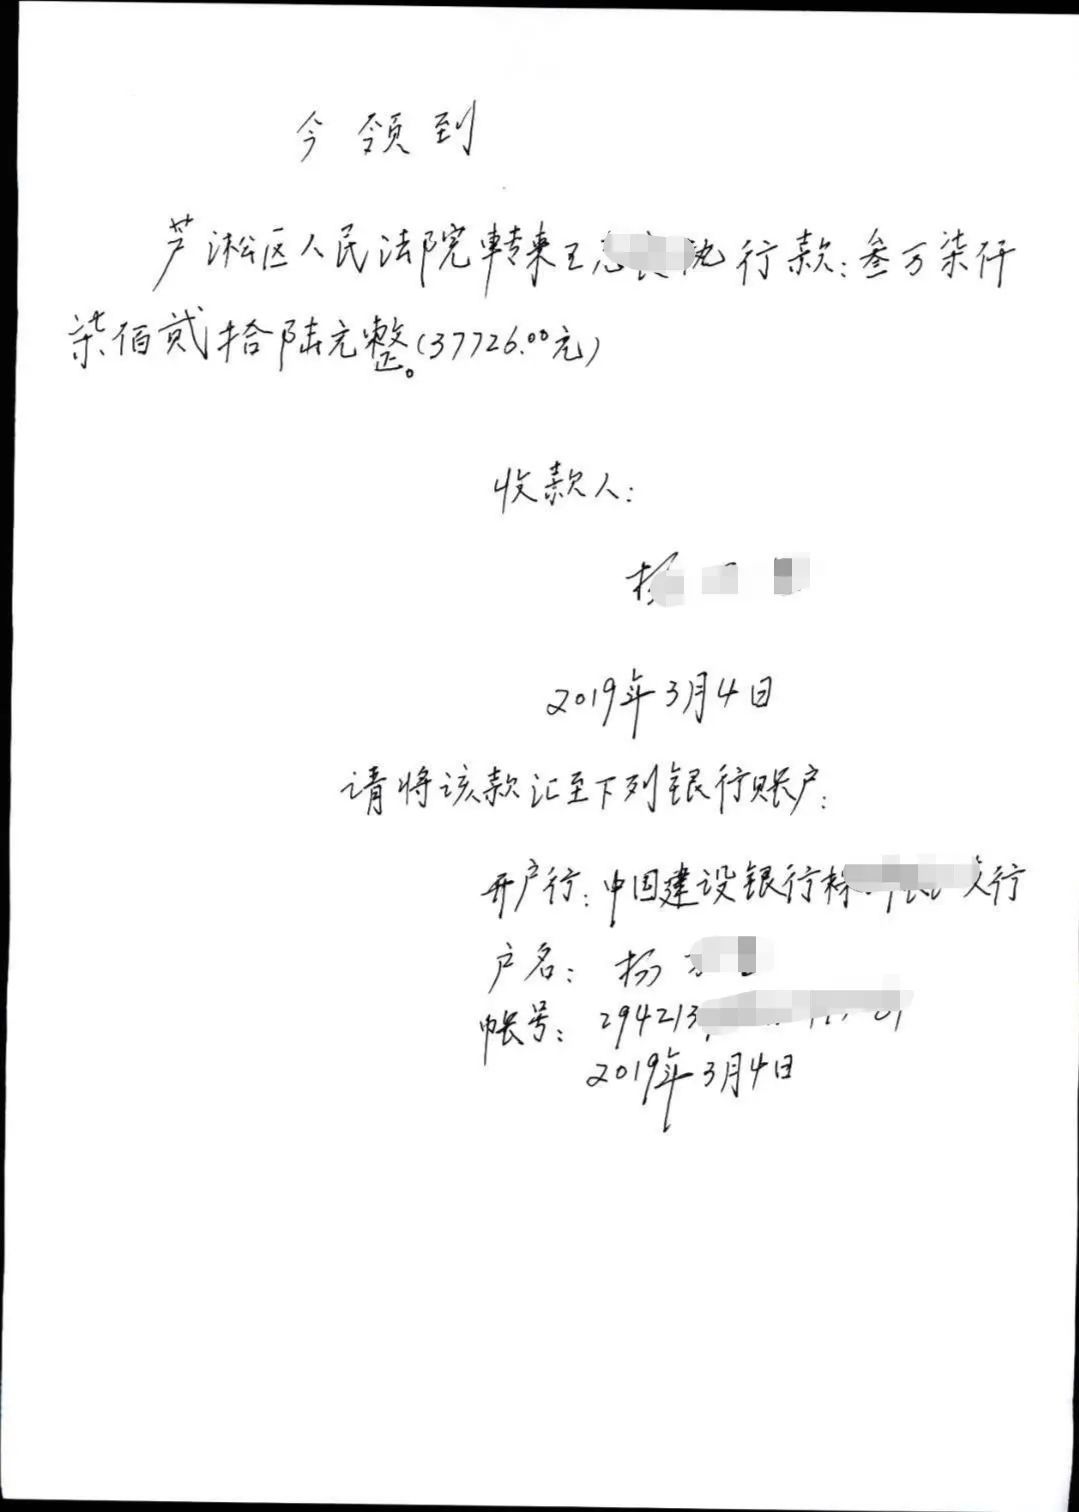 今领到
芦淞区人民法院转来王执行款：叁万柒仟
柒佰贰拾陆元整。(37726.00元)
收款人：
杨
2019年3月4日
请将该款汇至下列银行账户：
开户行：中国建设银行株行
户名：杨
帐号：294213
2019年3月4日